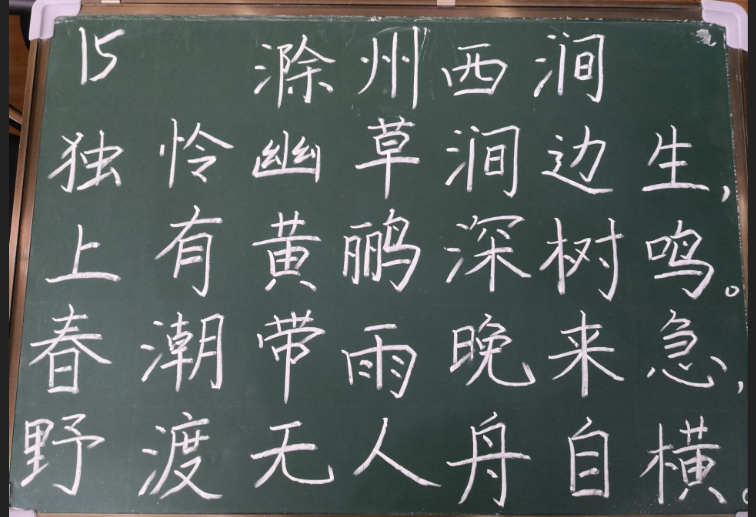 15 滁州西涧
独怜幽草涧边生,
上有黄鹂深树鸣。
春潮带雨晚来急,
野渡无人舟自横。